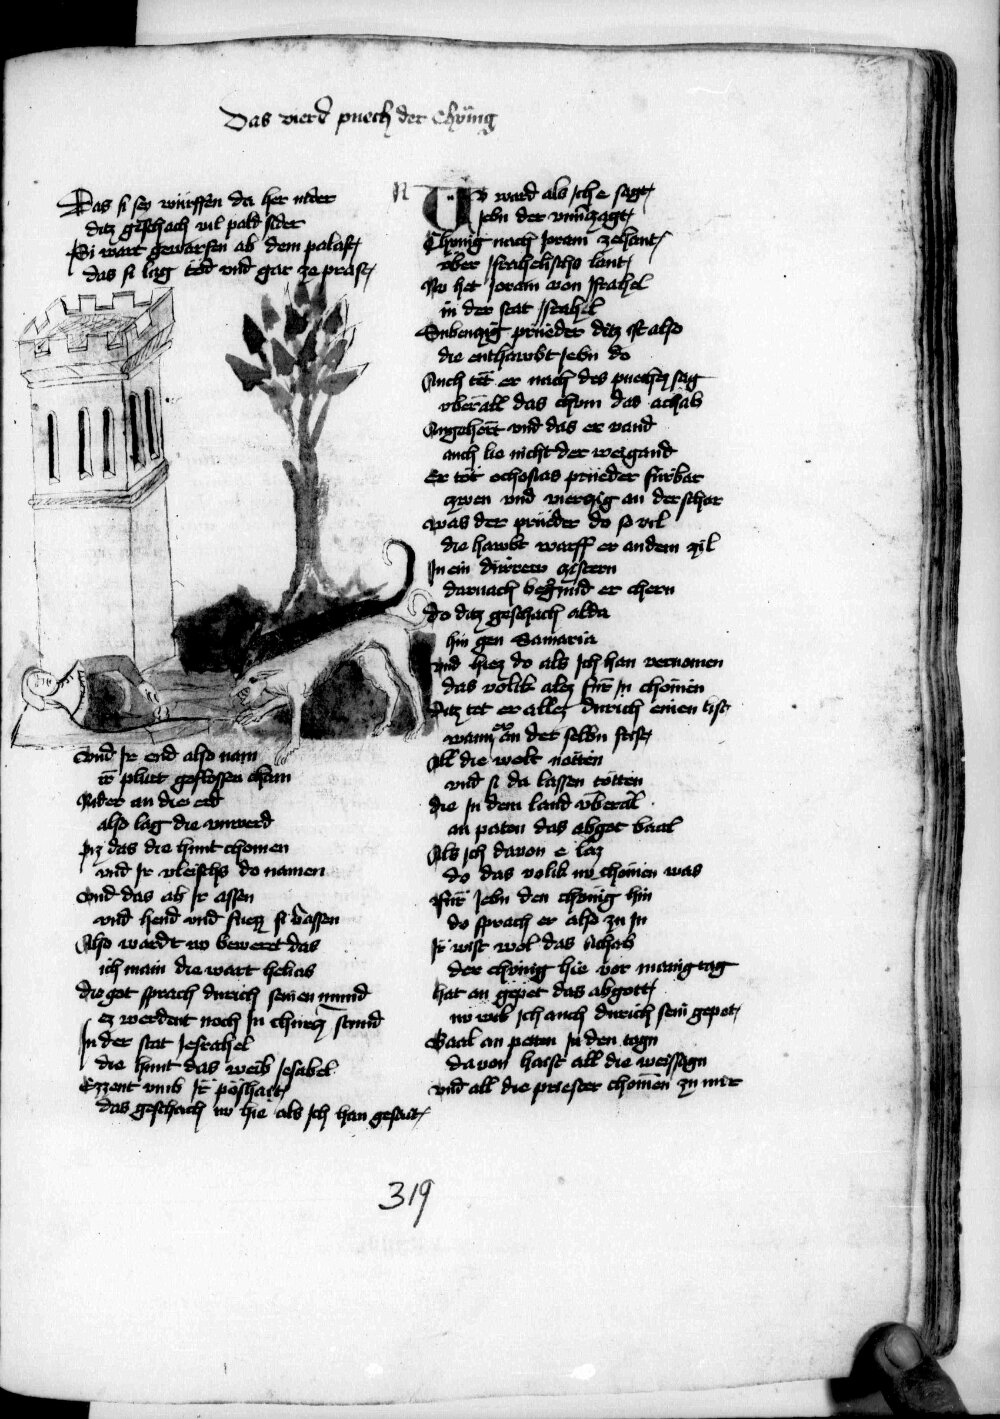 Das vierd puech der Chünig
Das si sey würffen da her nider
datz geschach vil pald sider
Si wart geworfen ab dem palast
das si lag tod vnd gar ze prast
Vnd Ir end also nam
Ir pluet geflossen cham
Nider an die erd
also lag die vnwerd
Piz das die hunt chomen
vnd Ir vleischs do namen
Vnd das ab Ir assen
vnd hend vnd fuezz si vassen
Also wardt nv beweret das
ich main die wart helias
die got sprach durich seinen mund
ez werdent noch In churcz stund
In der stat Jesrahel
die hunt das weib Jesabel
Ezzent vmb Ir poshait
das geschach nv hie als Ich han gesait
N
Nv ward als Ich e sagt
Jehu der vnuerzagt
Chünig nach Joram zehant
vber Israhelischs lant
Nv het Joram von Israhel
in der stat Israhel
Subenczig prüeder ditz ist also
die enthawbt Jehu do
Auch tet er nach des puechez sag
vberall das chom das achab
Angehort vnd das er vand
auch lie nicht der weigand
Er tot ochosias prüeder fürbar
zwen vnd vierczig an der schar
was der prüeder do so vil
die hawbt warff er an dem zil
In ein dürrew zistern
darnach begund er chern
do ditz geschach alda
hin gen Samaria
vnd hiez do als Ich han vernomen
das volik alez für In chomen
Ditz tet er allez durich einen list
wann er an der selbn frist
All die wolt nötten
vnd si da lassen tötten
die In dem land vberal
an paten das abgot baal
Als Ich dauon e laz
do das volik nv chomen was
Für Jehu den chönig hin
do sprach er also zu In
Ir wist wol das Achab
der chönig hie vor manig tag
hat an gepet das abgott
nv wil Ich auch durich sein gepot
Baal an petten In den tagn
dauon haist all die weissagn
vnd all die priester chomen zu mir
319